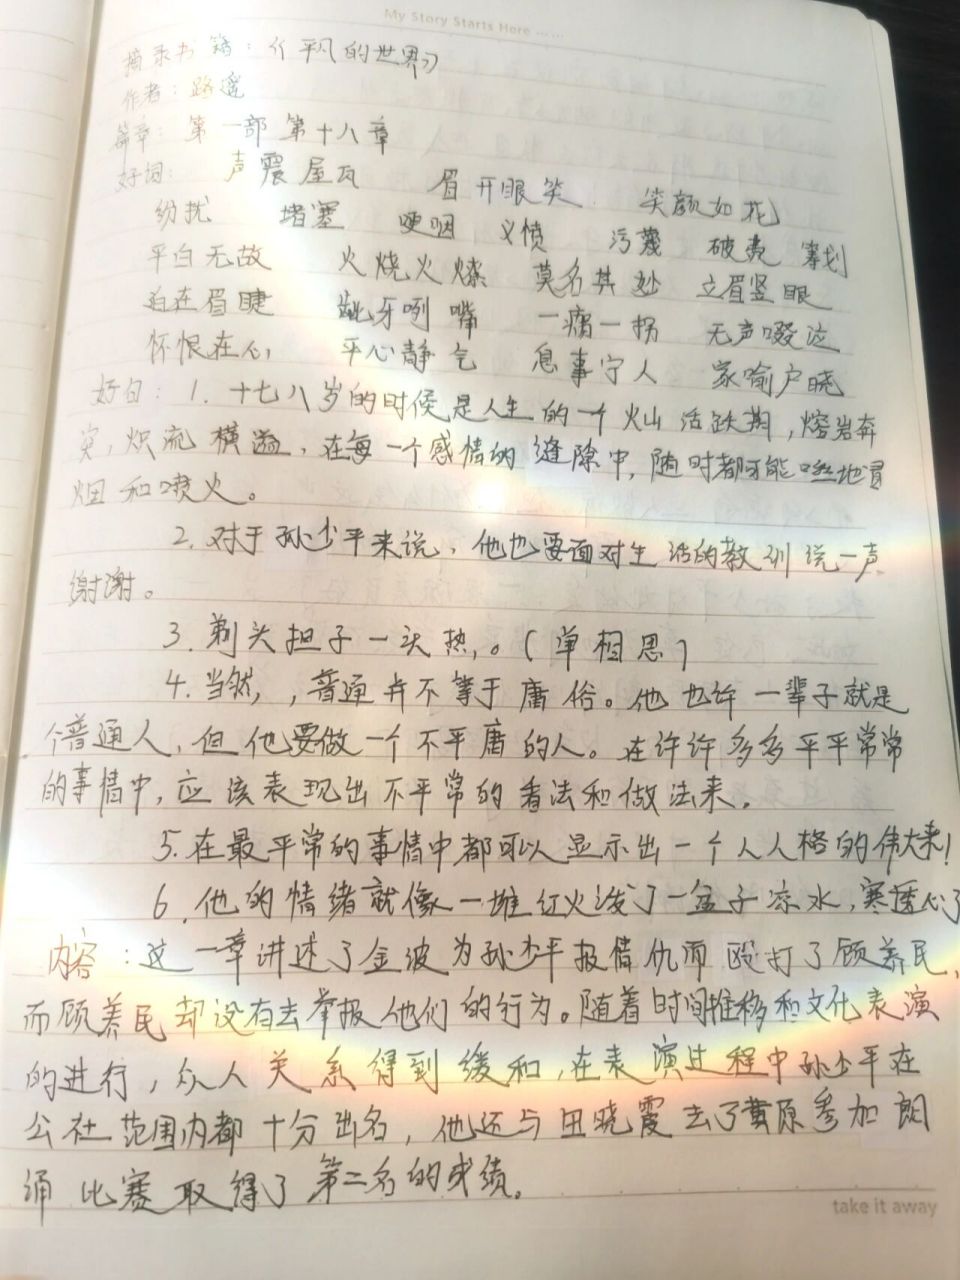 My Story Starts Here ......
摘录书籍：《平凡的世界》
作者：路遥
篇章：第一部 第十八章
好词： 声震屋瓦 眉开眼笑 笑颜如花
纷扰 堵塞 哽咽 义愤 污蔑 破费 筹划
平白无故 火烧火燎 莫名其妙 立眉竖眼
迫在眉睫 龇牙咧嘴 一瘸一拐 无声啜泣
怀恨在心 平心静气 息事宁人 家喻户晓
好句：1. 十七八岁的时候是人生的一个火山活跃期，熔岩奔
突，炽流横溢，在每一个感情的缝隙中，随时都可能咝咝地冒
烟和喷火。
2. 对于孙少平来说，他也要面对生活的教训说一声
谢谢。
3. 剃头担子一头热。（单相思）
4. 当然，普通并不等于庸俗。他也许一辈子就是
个普通人，但他要做一个不平庸的人。在许许多多平平常常
的事情中，应该表现出不平常的看法和做法来。
5. 在最平常的事情中都可以显示出一个人人格的伟大来！
6. 他的情绪就像一堆红火泼了一盆子凉水，寒透心了
内容：这一章讲述了金波为孙少平报情仇而殴打了顾养民，
而顾养民却没有去举报他们的行为。随着时间推移和文化表演
的进行，众人关系得到缓和，在表演过程中孙少平在
公社范围内都十分出名，他还与田晓霞去了黄原参加朗
诵比赛取得了第二名的成绩。
take it away